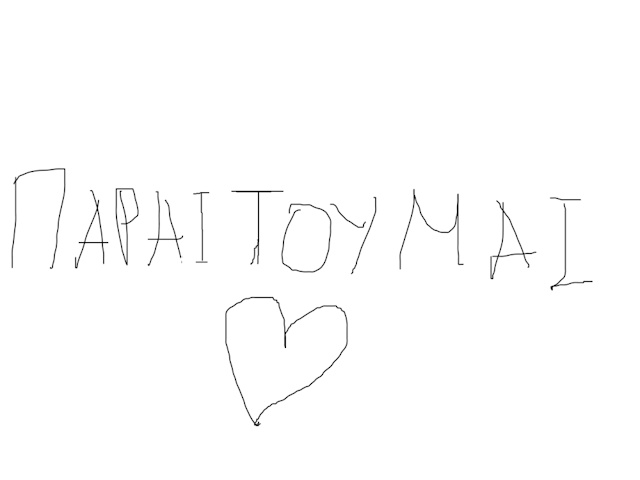 ΠΑΡΑΙΤΟΥΜΑΙ